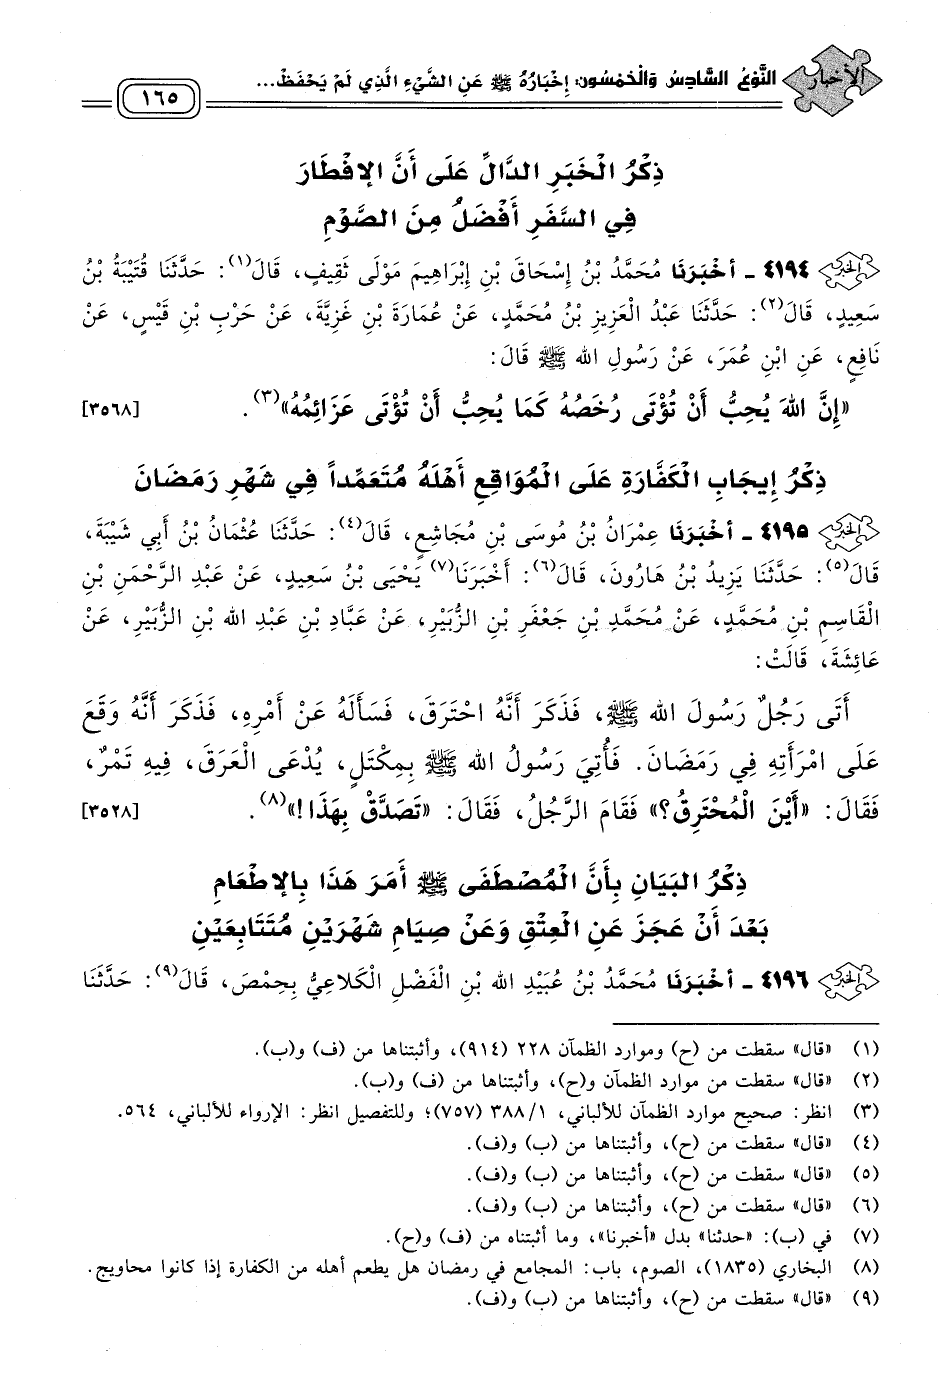 الأخبار
النَّوْعُ السَّادِسُ وَالْخَمْسُون: إِخْبَارُهُ ﷺ عَنِ الشَّيْءِ الَّذِي لَمْ يَحْفَظْ...
١٦٥
ذِكْرُ الْخَبَرِ الدَّالِّ عَلَى أَنَّ الإِفْطَارَ
فِي السَّفَرِ أَفْضَلُ مِنَ الصَّوْمِ
٤١٩٤ - أَخْبَرَنَا مُحَمَّدُ بْنُ إِسْحَاقَ بْنِ إِبْرَاهِيمَ مَوْلَى ثَقِيفٍ، قَالَ(١): حَدَّثَنَا قُتَيْبَةُ بْنُ
سَعِيدٍ، قَالَ(٢): حَدَّثَنَا عَبْدُ الْعَزِيزِ بْنُ مُحَمَّدٍ، عَنْ عُمَارَةَ بْنِ غَزِيَّةَ، عَنْ حَرْبِ بْنِ قَيْسٍ، عَنْ
نَافِعٍ، عَنِ ابْنِ عُمَرَ، عَنْ رَسُولِ الله ﷺ قَالَ:
«إِنَّ اللهَ يُحِبُّ أَنْ تُؤْتَى رُخَصُهُ كَمَا يُحِبُّ أَنْ تُؤْتَى عَزَائِمُهُ»(٣). [٣٥٦٨]
ذِكْرُ إِيجَابِ الْكَفَّارَةِ عَلَى الْمُوَاقِعِ أَهْلَهُ مُتَعَمِّداً فِي شَهْرِ رَمَضَانَ
٤١٩٥ - أَخْبَرَنَا عِمْرَانُ بْنُ مُوسَى بْنِ مُجَاشِعٍ، قَالَ(٤): حَدَّثَنَا عُثْمَانُ بْنُ أَبِي شَيْبَةَ،
قَالَ(٥): حَدَّثَنَا يَزِيدُ بْنُ هَارُونَ، قَالَ(٦): أَخْبَرَنَا(٧) يَحْيَى بْنُ سَعِيدٍ، عَنْ عَبْدِ الرَّحْمَنِ بْنِ
الْقَاسِمِ بْنِ مُحَمَّدٍ، عَنْ مُحَمَّدِ بْنِ جَعْفَرِ بْنِ الزُّبَيْرِ، عَنْ عَبَّادِ بْنِ عَبْدِ الله بْنِ الزُّبَيْرِ، عَنْ
عَائِشَةَ، قَالَتْ:
أَتَى رَجُلٌ رَسُولَ الله ﷺ، فَذَكَرَ أَنَّهُ احْتَرَقَ، فَسَأَلَهُ عَنْ أَمْرِهِ، فَذَكَرَ أَنَّهُ وَقَعَ
عَلَى امْرَأَتِهِ فِي رَمَضَانَ. فَأُتِيَ رَسُولُ الله ﷺ بِمِكْتَلٍ، يُدْعَى الْعَرَقَ، فِيهِ تَمْرٌ،
فَقَالَ: «أَيْنَ الْمُحْتَرِقُ؟» فَقَامَ الرَّجُلُ، فَقَالَ: «تَصَدَّقْ بِهَذَا!»(٨). [٣٥٢٨]
ذِكْرُ الْبَيَانِ بِأَنَّ الْمُصْطَفَى ﷺ أَمَرَ هَذَا بِالإِطْعَامِ
بَعْدَ أَنْ عَجَزَ عَنِ الْعِتْقِ وَعَنْ صِيَامِ شَهْرَيْنِ مُتَتَابِعَيْنِ
٤١٩٦ - أَخْبَرَنَا مُحَمَّدُ بْنُ عُبَيْدِ الله بْنِ الْفَضْلِ الْكَلاعِيُّ بِحِمْصَ، قَالَ(٩): حَدَّثَنَا
(١) «قال» سقطت من (ح) وموارد الظمآن ٢٢٨ (٩١٤)، وأثبتناها من (ف) و(ب).
(٢) «قال» سقطت من موارد الظمآن و(ح)، وأثبتناها من (ف) و(ب).
(٣) انظر: صحيح موارد الظمآن للألباني، ٣٨٨/١ (٧٥٧)؛ وللتفصيل انظر: الإرواء للألباني، ٥٦٤.
(٤) «قال» سقطت من (ح)، وأثبتناها من (ب) و(ف).
(٥) «قال» سقطت من (ح)، وأثبتناها من (ب) و(ف).
(٦) «قال» سقطت من (ح)، وأثبتناها من (ب) و(ف).
(٧) في (ب): «حدثنا» بدل «أخبرنا»، وما أثبتناه من (ف) و(ح).
(٨) البخاري (١٨٣٥)، الصوم، باب: المجامع في رمضان هل يطعم أهله من الكفارة إذا كانوا محاويج.
(٩) «قال» سقطت من (ح)، وأثبتناها من (ب) و(ف).